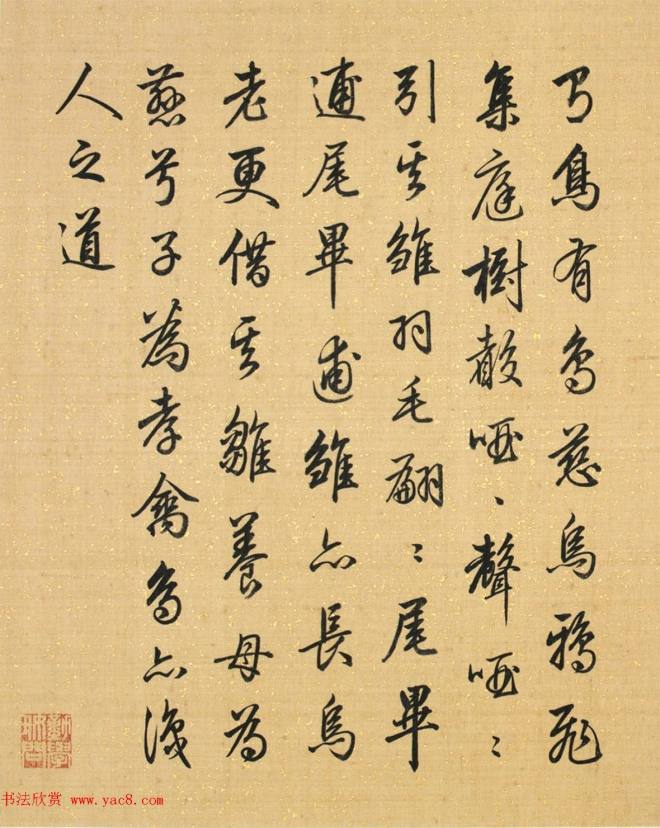 有鳥有鳥慈烏鴉飛
集庭樹啞ヽ聲啞ヽ
引其雛羽毛翩ヽ尾畢
逋尾畢逋雛亦長烏
老更借其雛養母為
慈兮子為孝禽鳥亦識
人之道
书法欣赏 www.yac8.com